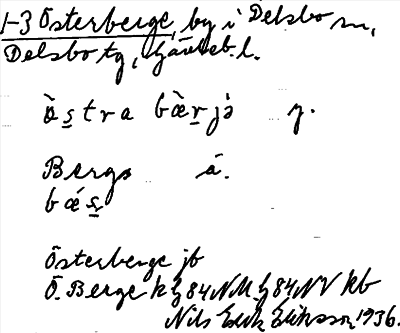 1-3 Österberge, by i Delsbo sn,
Delsbo tg, Gävleb. l.
ö̀s̲tra bæ̀r̲jə y.
Bergs á.
bǽs̲
Österberge jb
Ö. Berge kz 84NM z 84NV kb
Nils Erik Eriksson 1936.